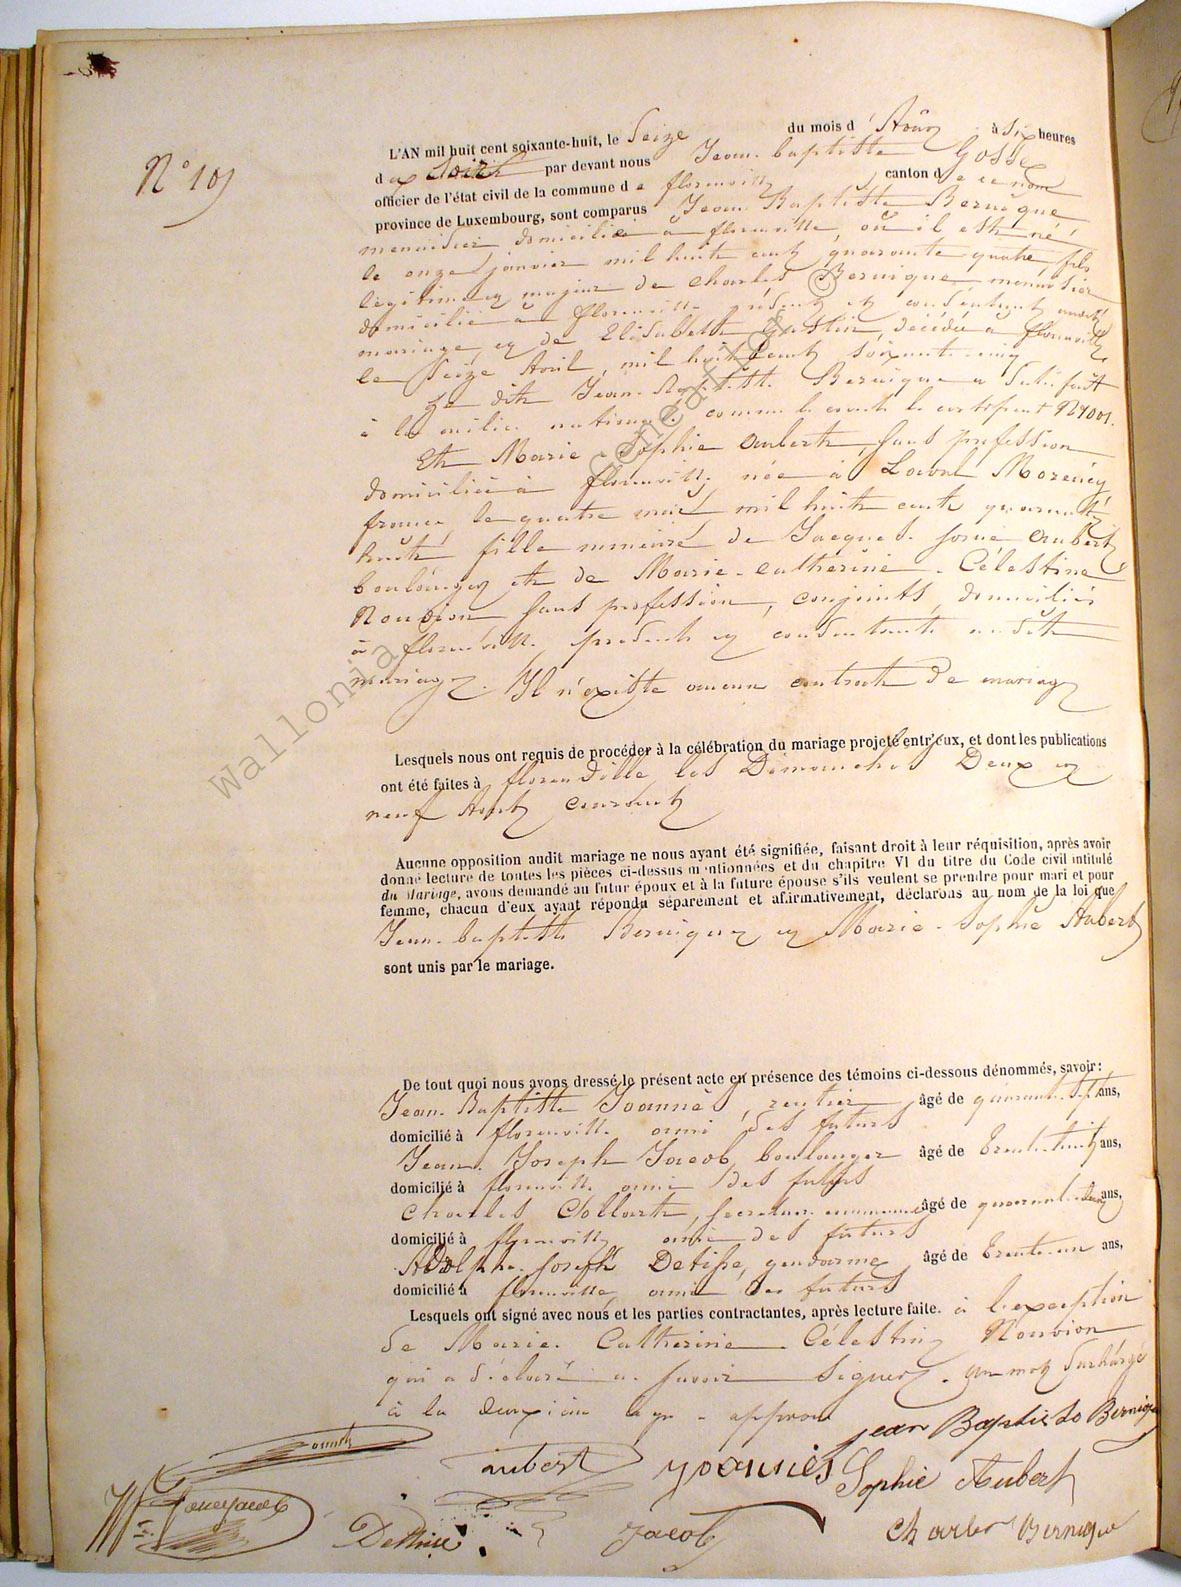 N° 10
L'AN mil huit cent soixante-huit, le Seize du mois d'Août à six heures
du Soir par devant nous Jean-baptiste Gosse
officier de l'état civil de la commune de florenville canton de ce nom
province de Luxembourg, sont comparus Jean-Baptiste Bernique
menuisier, domicilié à florenville, où il est né,
le onze janvier mil huit cent quarante quatre, fils
légitime et majeur de Charles Bernique menuisier
domicilié à florenville présent et consentant audit
mariage, et de Elisabeth décédée à florenville
le Seize Avril, mil huit cent soixante-cinq
Le dit Jean-Baptiste Bernique a satisfait
à la milice nationale comme le constate le certificat N°
Et Marie-Sophie Aubert, sans profession
domiciliée à florenville, née à Laval Morency
france, le quatre mai mil huit cent quarante
huit fille mineure de Jacques Aubert
boulanger et de Marie-Catherine-Célestine
Nouvion sans profession, conjoints, domiciliés
à florenville, présents et consentants audit
mariage. Il n'existe aucun contrat de mariage
Lesquels nous ont requis de procéder à la célébration du mariage projeté entr'eux, et dont les publications
ont été faites à florenville, les Dimanches Deux et
neuf Août courant
Aucune opposition audit mariage ne nous ayant été signifiée, faisant droit à leur réquisition, après avoir
donné lecture de toutes les pièces ci-dessus mentionnées et du chapitre VI du titre du Code civil intitulé
du Mariage, avons demandé au futur époux et à la future épouse s'ils veulent se prendre pour mari et pour
femme, chacun d'eux ayant répondu séparement et affirmativement, déclarons au nom de la loi que
Jean-baptiste Bernique et Marie-Sophie Aubert
sont unis par le mariage.
De tout quoi nous avons dressé le présent acte en présence des témoins ci-dessous dénommés, savoir:
Jean-Baptiste Joannès, rentier âgé de quarante-sept ans,
domicilié à florenville ami des futurs
Jean-Joseph Jacob, boulanger âgé de trente-huit ans,
domicilié à florenville ami des futurs
Charles Collart, secrétaire communal âgé de quarante-deux ans,
domicilié à florenville ami des futurs
Adolphe-Joseph Detisse, gendarme âgé de trente-un ans,
domicilié à florenville, ami des futurs
Lesquels ont signé avec nous et les parties contractantes, après lecture faite. à l'exception
de Marie-Catherine-Célestine Nouvion
qui a déclaré ne savoir signer. Un mot surchargé
à la deuxième ligne approuvé
Jean Baptiste Bernique
aubert Joannès Sophie Aubert
Detisse Jacob Charles Bernique
Wallonia Genealogy ©